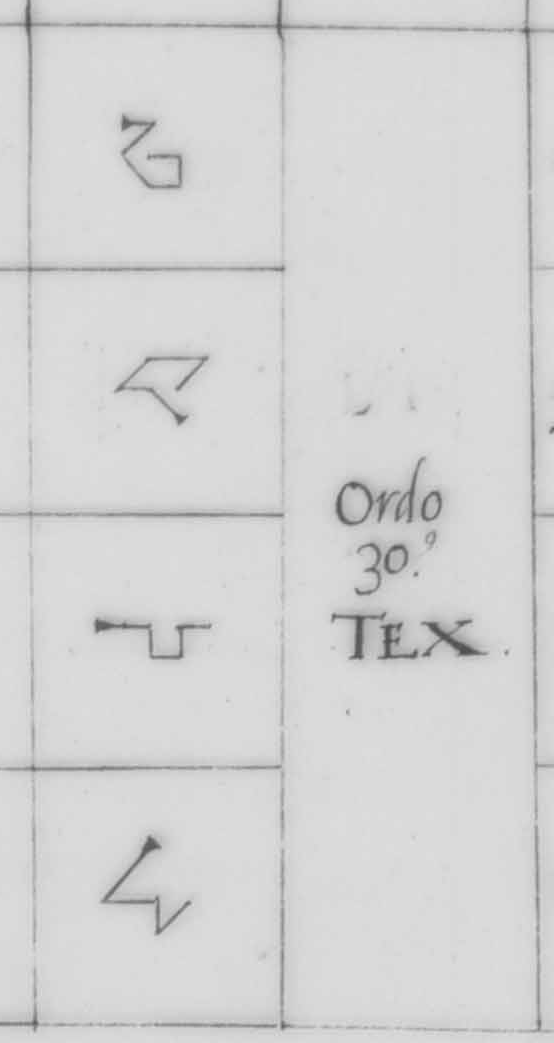 Ordo
30.º
TEX.